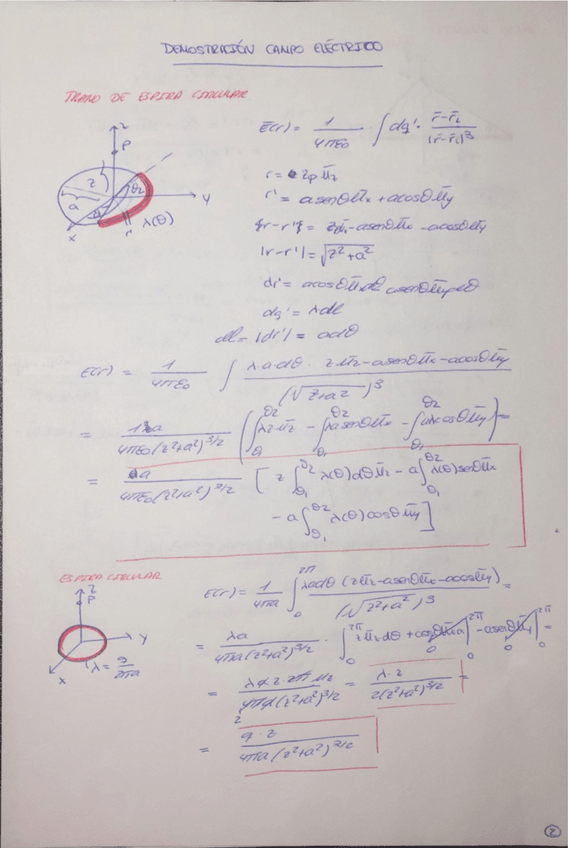 DEMOSTRACIÓN CAMPO ELÉCTRICO
TRAMO DE ESPIRA CIRCULAR
z
P
z
θ2
a
θ1
y
x
r'
λ(θ)
E̅(r) = 1/(4πε0) · ∫ dq' · (r̅ - r̅')/|r̅ - r̅'|³
r = zp u̅z
r' = a senθ u̅x + a cosθ u̅y
r - r' = z u̅z - a senθ u̅x - a cosθ u̅y
|r - r'| = √(z² + a²)
dr' = a cosθ u̅x dθ - a senθ u̅y dθ
dq' = λ dl
dl = |dr'| = a dθ
E(r) = 1/(4πε0) ∫ (λ · a dθ · z u̅z - a senθ u̅x - a cosθ u̅y)/(√(z² + a²))³
= λa/(4πε0(z² + a²)^3/2) (∫θ1^θ2 λz u̅z - ∫θ1^θ2 λa senθ u̅x - ∫θ1^θ2 aλ cosθ u̅y) =
= a/(4πε0(z² + a²)^3/2) [z ∫θ1^θ2 λ(θ)dθ u̅z - a ∫θ1^θ2 λ(θ) senθ u̅x
- a ∫θ1^θ2 λ(θ) cosθ u̅y]
ESPIRA CIRCULAR
z
P
y
x
λ = q/2πa
E(r) = 1/(4πε) ∫0^2π (λ a dθ (z u̅z - a senθ u̅x - a cosθ u̅y))/(√(z² + a²))³ =
= λa/(4πε(z² + a²)^3/2) · ∫0^2π z u̅z dθ + cosθ u̅x a |0^2π - a senθ u̅y |0^2π =
= λ a z · 2π u̅z/(4πε(z² + a²)^3/2) = λ · z/(2(z² + a²)^3/2) =
= q · z/(4πa(z² + a²)^3/2)
2